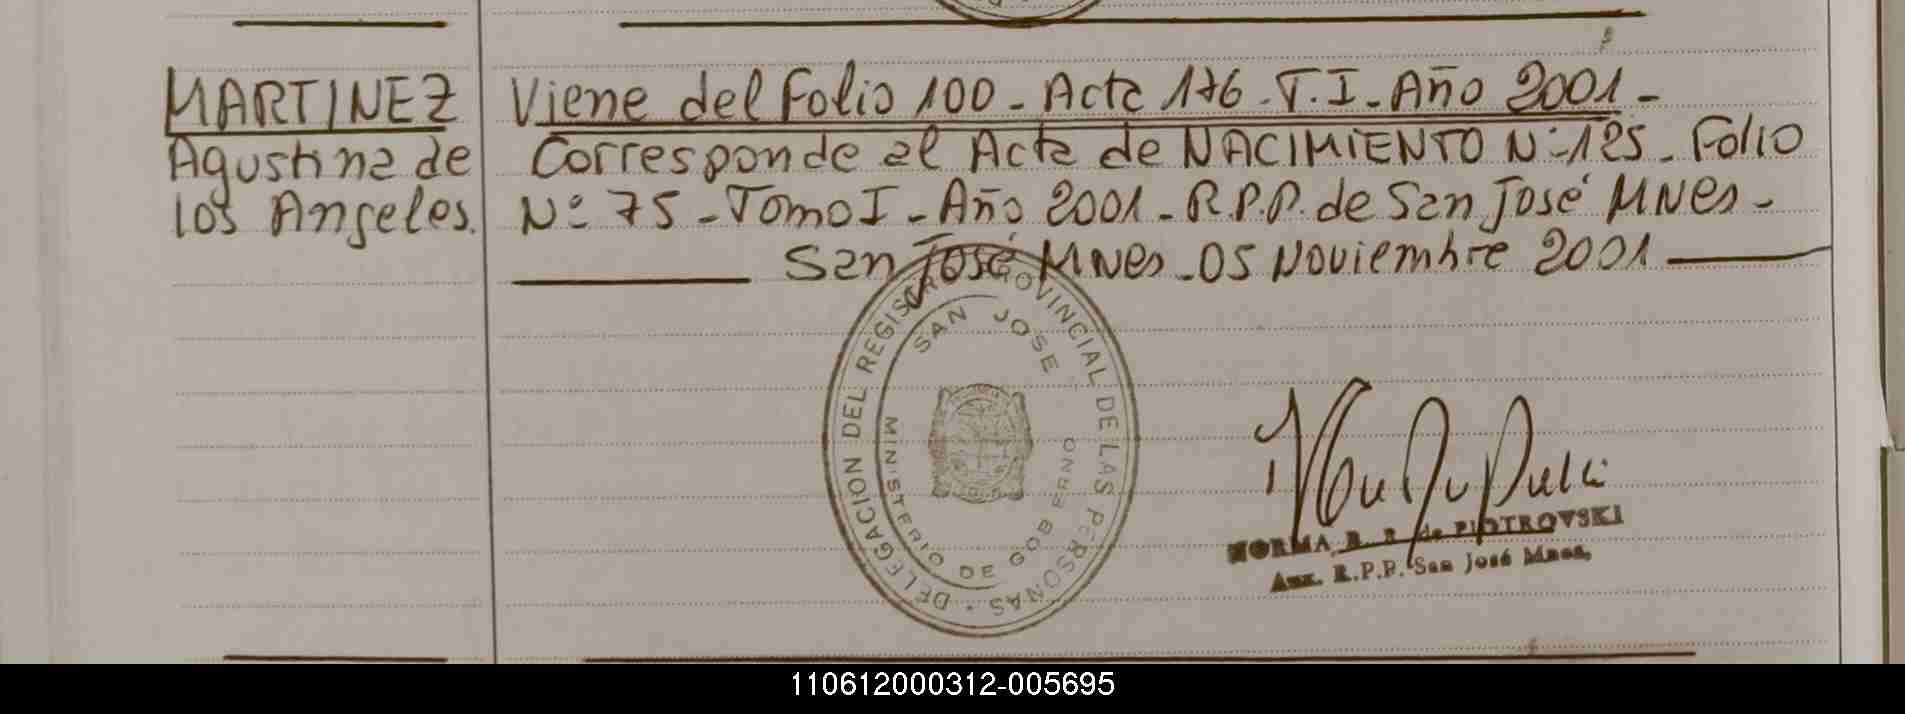 MARTINEZ
Agustina de
los Angeles.
Viene del Folio 100 - Acta 176 - T.I - Año 2001 -
Corresponde al Acta de NACIMIENTO Nº 125 - Folio
Nº 75 - Tomo I - Año 2001 - R.P.P. de San José MNes -
San José MNes - 05 Noviembre 2001
DELEGACION DEL REGISTRO PROVINCIAL DE LAS PERSONAS -
SAN JOSE
MINISTERIO DE GOBIERNO
NORMA B. de PIOTROVSKI
Aux. R.P.P. San José Mnes,
110612000312-005695